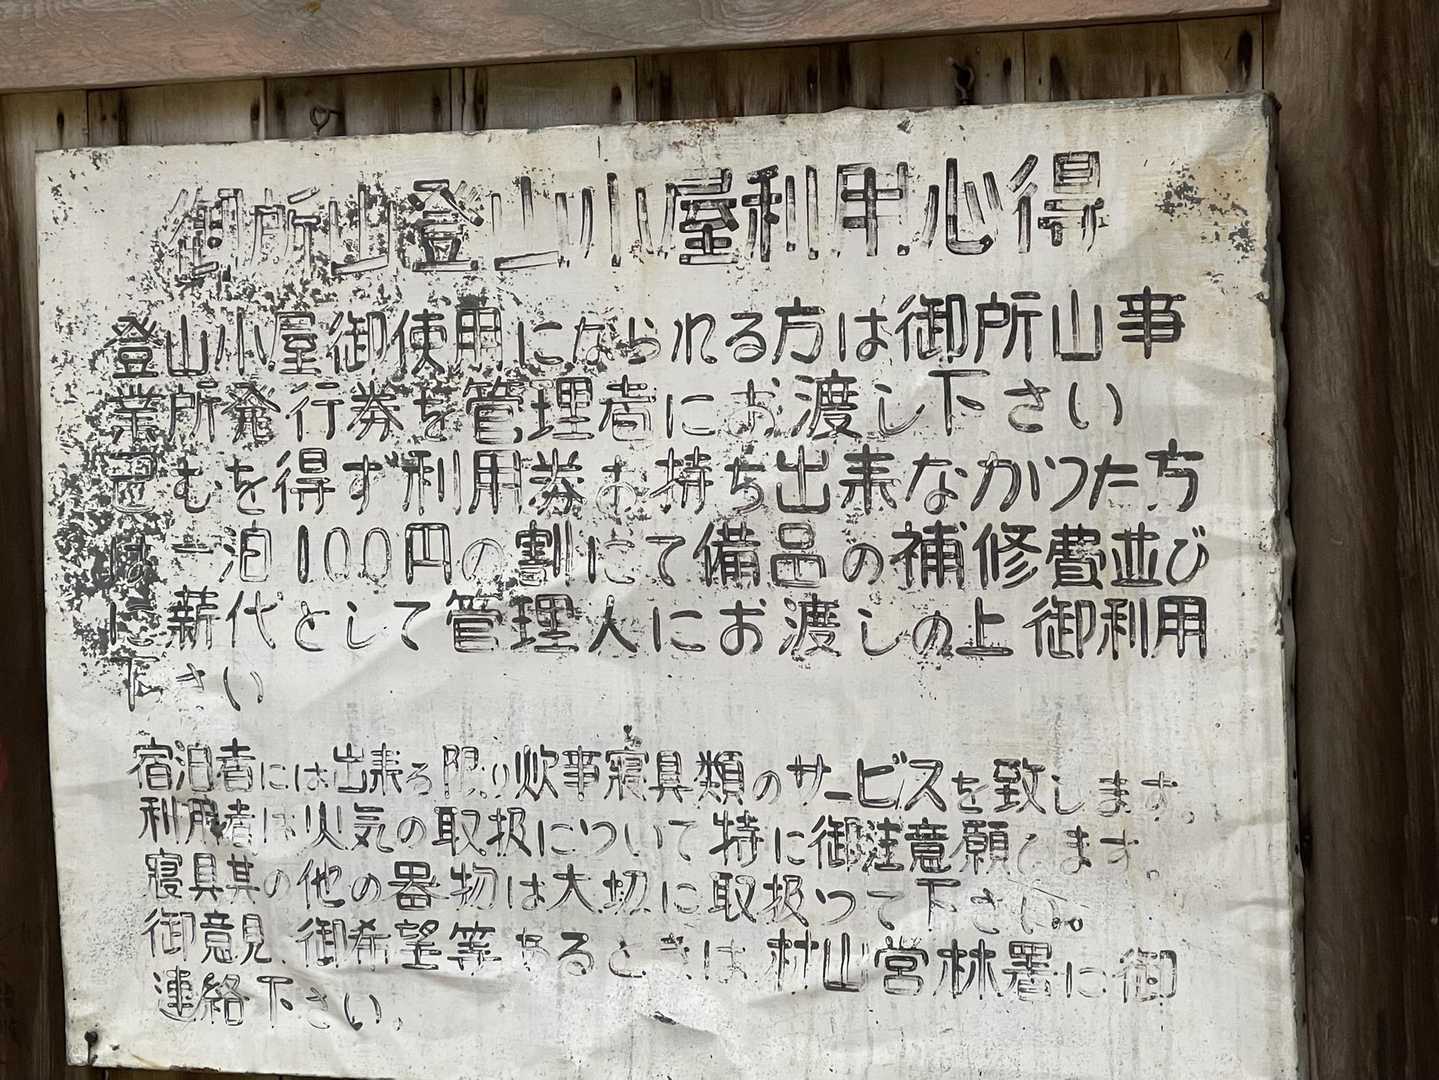 御所山登山小屋利用心得
登山小屋御使用になられる方は御所山事
業所発行券を管理者にお渡し下さい
已むを得ず利用券お持ち出来なかつた方
は一泊100円の割にて備品の補修費並び
に薪代として管理人にお渡しの上御利用
下さい
宿泊者には出来る限り炊事寝具類のサービスを致します。
利用者は火気の取扱について特に御注意願います。
寝具其の他の器物は大切に取扱つて下さい。
御意見、御希望等あるときは村山営林署に御
連絡下さい。